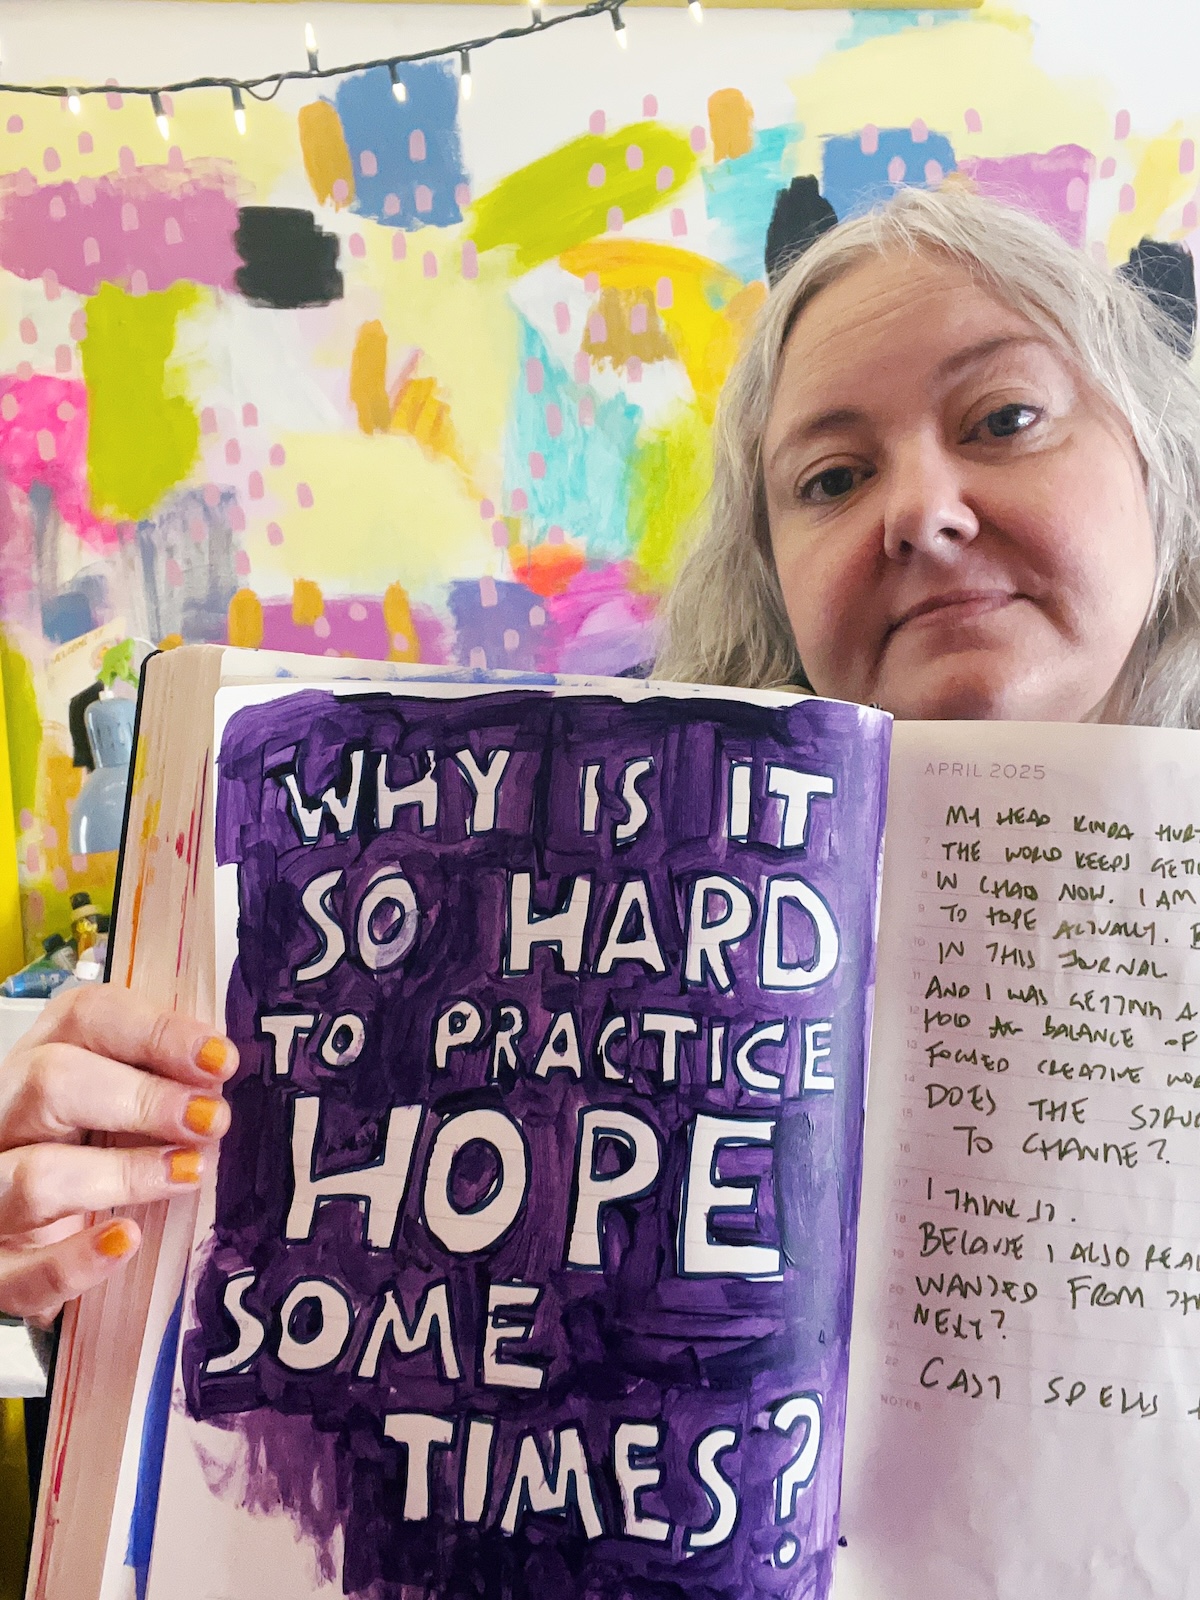 WHY IS IT
SO HARD
TO PRACTICE
HOPE
SOME
TIMES?
APRIL 2025
MY HEAD KINDA
THE WORLD KEEPS
IN CHAO NOW. I AM
TO HOPE ACTUALLY.
IN THIS JOURNAL
AND I WAS GETTING A
HOLD BALANCE OF
FOCUSED CREATIVE
DOES THE
TO CHANGE?
I THINK IT.
BECAUSE I ALSO
WANTED FROM
NEXT?
CAST SPELLS
NOTES